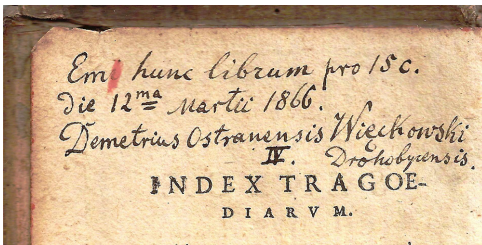 Emi hunc librum pro 15 c.
die 12ma Martii 1866.
Demetrius Ostranensis Więckowski
IV. Drohobycensis.
INDEX TRAGOE-
DIARVM.